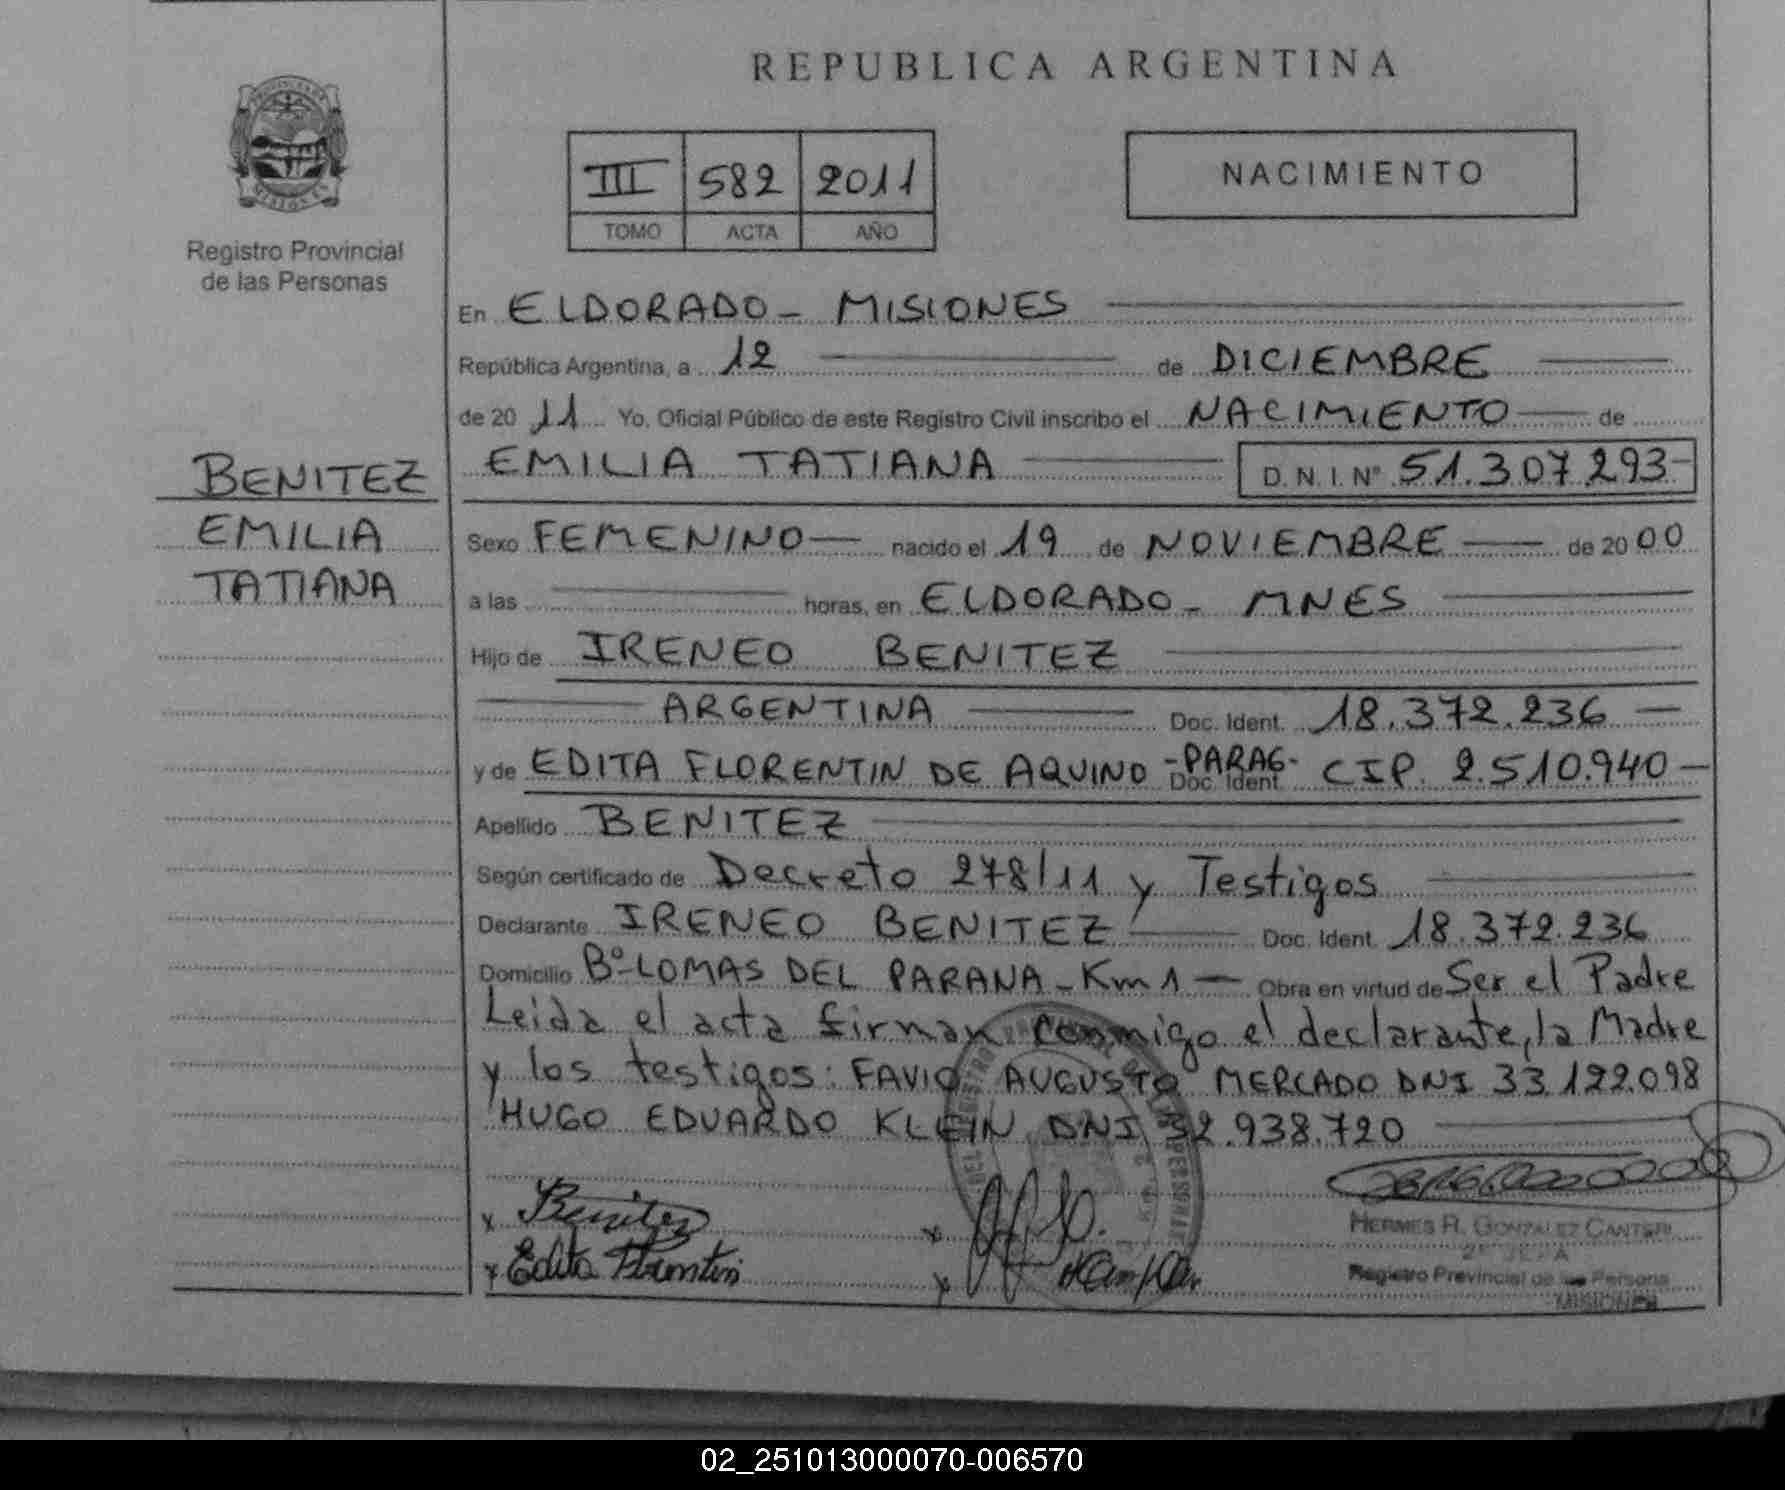 REPUBLICA ARGENTINA
PROVINCIA DE
MISIONES
Registro Provincial
de las Personas
III 582 2011
TOMO ACTA AÑO
NACIMIENTO
En ELDORADO - MISIONES
República Argentina, a 12 de DICIEMBRE
de 20 11 Yo, Oficial Público de este Registro Civil inscribo el NACIMIENTO de
BENITEZ
EMILIA
TATIANA
EMILIA TATIANA D. N. I. Nº 51.307.293-
Sexo FEMENINO nacido el 19 de NOVIEMBRE de 20 00
a las horas, en ELDORADO - MNES
Hijo de IRENEO BENITEZ
ARGENTINA Doc. Ident. 18.372.236
y de EDITA FLORENTIN DE AQUINO -PARAG- Doc. Ident. CIP. 2.510.940
Apellido BENITEZ
Según certificado de Decreto 278/11 y Testigos
Declarante IRENEO BENITEZ Doc. Ident. 18.372.236
Domicilio Bº-LOMAS DEL PARANA - Km 1 - Obra en virtud de Ser el Padre
Leida el acta firman conmigo el declarante, la Madre
y los testigos: FAVIO AUGUSTO MERCADO DNI 33.122.098
HUGO EDUARDO KLEIN DNI 32.938.720
x Benitez x
x Edita Florentin x
HERMES R. GONZALEZ CANTERI
Registro Provincial de las Persona
MISIONES
02_251013000070-006570